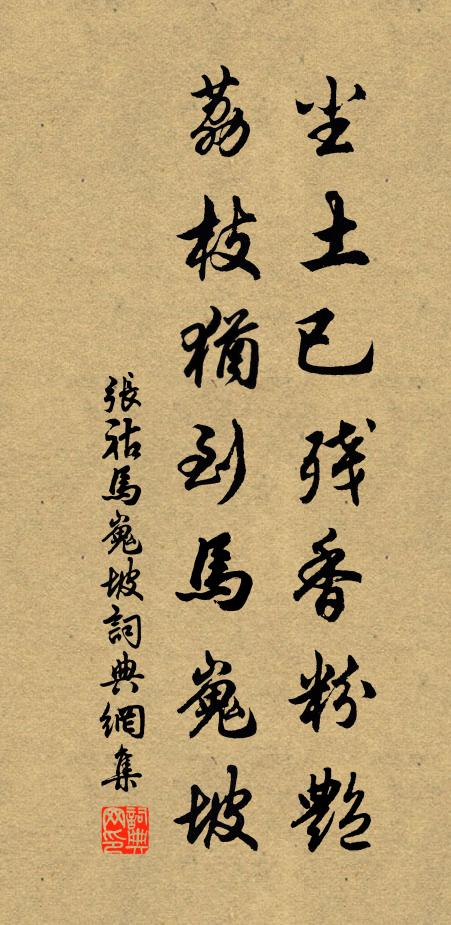 尘土已残香粉艷
荔枝猶到馬嵬坡
張祜馬嵬坡詞典網集
詞典网印